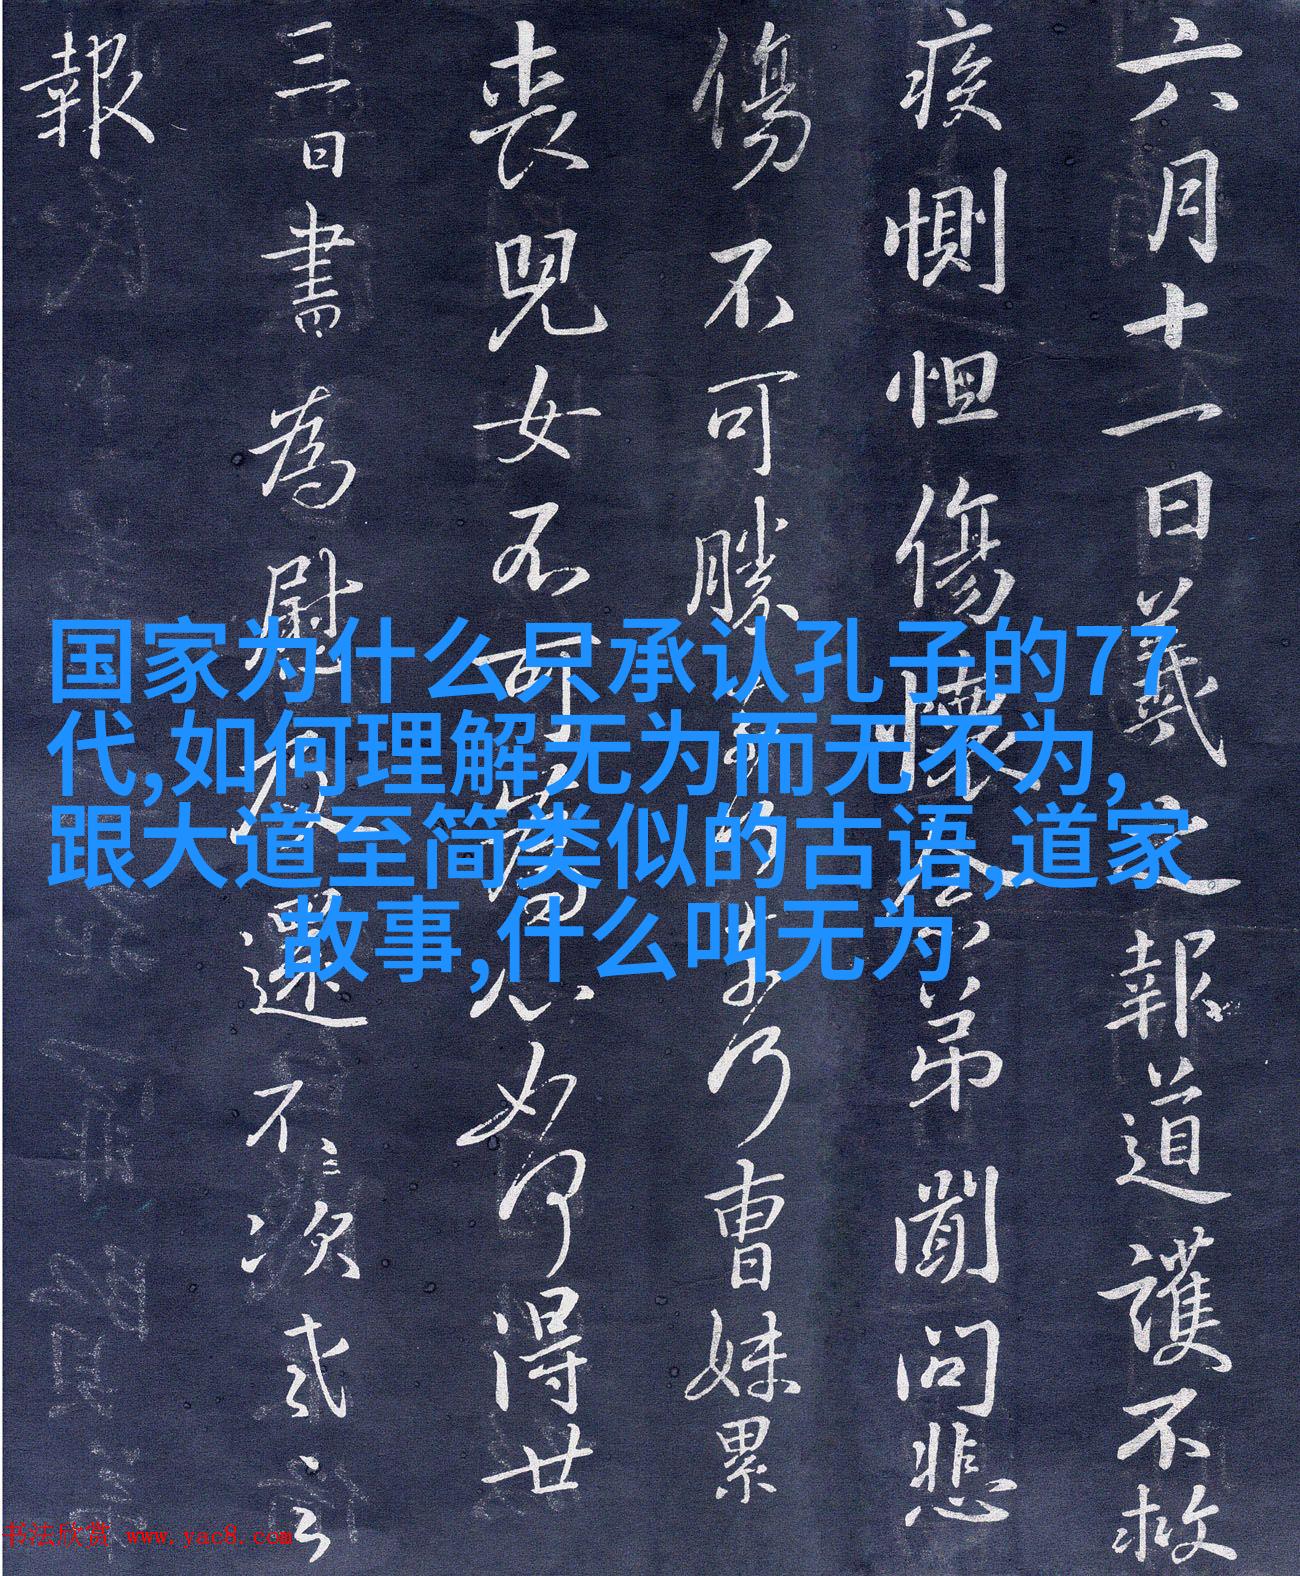 六月十一日羲之報道護不救
疾惻怛傷懷念弟聞問悲
傷不可勝乃曹妹累
喪兒女不可為心如何得廿
三日書為慰及還不〻次
報
国家为什么只承认孔子的77
代,如何理解无为而无不为,
跟大道至简类似的古语,道家
故事,什么叫无为
书法欣赏 www.yac8.com